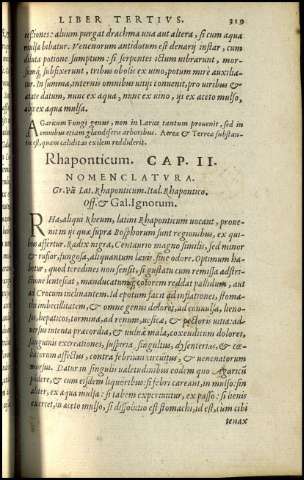 LIBER TERTIVS. 319
ctiones: aluum purgat drachma una aut altera, si cum aqua
mulsa bibatur. Venenorum antidotum est denarij instar, cum
diluta potione sumptum: si serpentes ictum uibrarunt, mor-
sumq; subfixerunt, tribus obolis ex uino, potum mirè auxilia-
tur. In summa, internis omnibus uitijs conuenit, pro uiribus &
ætate datum, nunc ex aqua, nunc ex uino, ijs ex aceto mulso,
aut ex aqua mulsa.
AGaricum Fungi genus, non in Larice tantum prouenit, sed in
omnibus etiam glandiferis arboribus. Aerea & Terrea substan-
tia est, quam caliditas exilem reddiderit.
Rhaponticum. CAP. II.
NOMENCLATVRA.
Gr. Ρᾶ Lat. Rhaponticum. Ital. Rhapontico.
Off. & Gal. Ignorum.
RHa, aliqui Rheum, latini Rhaponticum uocant, proue-
nit in ijs quæ supra Bosphorum sunt regionibus, ex qui-
bus affertur. Radix nigra, Centaurio magno similis, sed minor
& rufior, fungosa, aliquantum læuis, sine odore. Optimum ha-
betur, quod teredines non sensit, si gustatu cum remissa adstri-
ctione lentescat, manducatumq; colorem reddat pallidum, aut
ad Crocum inclinantem. Id epotum facit ad inflationes, stoma-
chi imbecillitatem, & omne genus doloris, ad conuulsa, lieno-
sos, hepaticos, tormina, ad renum, uesicæ, & pectoris uitia: ad-
uersus intenta præcordia, & uuluæ mala, coxendicum dolores,
sanguinis excreationes, suspiria, singultus, dysenterias, & cœ-
liacorum affectus, contra febrium circuitus, & uenenatorum
morsus. Datur in singulis ualetudinibus eodem quo Agaricũ
pondere, & cum eisdem liquoribus: si febri careant, in mulso: sin
aliter, ex aqua mulsa: si tabem experiuntur, ex passo: si lienis
curetur, in aceto mulso, si dissolutio est stomachi, id est, cum cibi
tenax